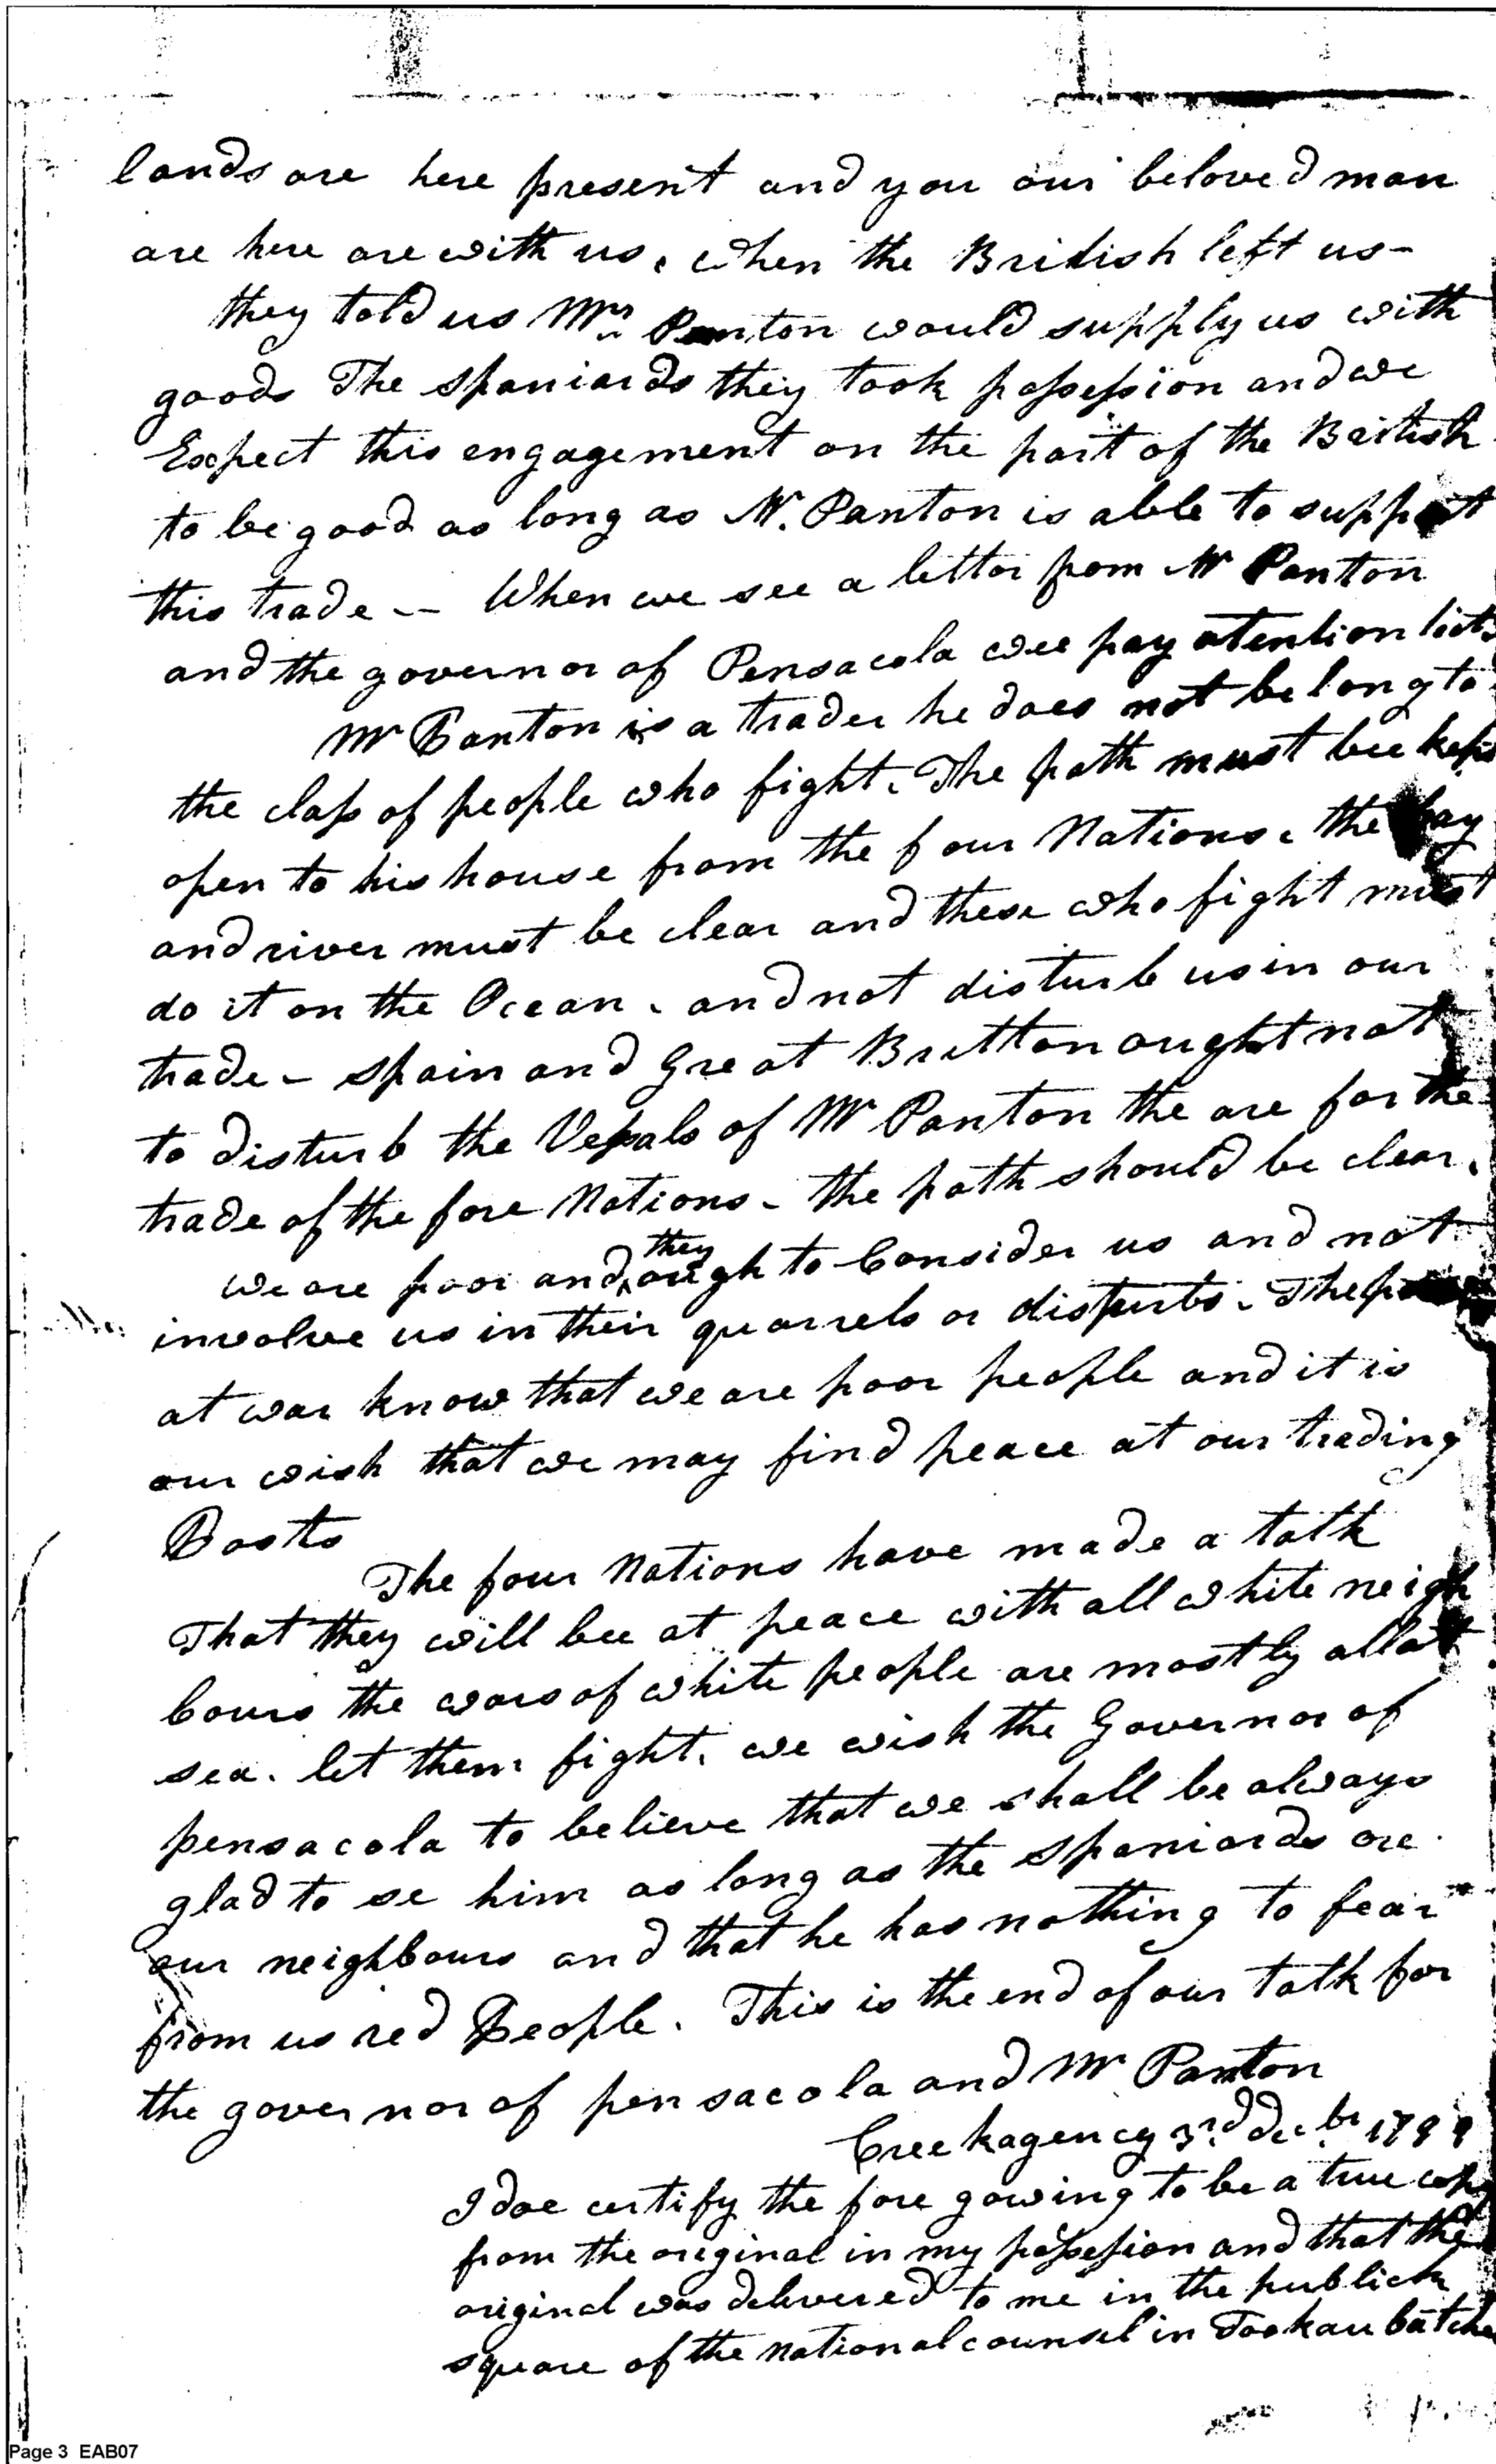 lands are here present and you our beloved man
are here are with us, when the British left us-
they told us Mr Panton would supply us with
goods The Spaniards they took possession and we
Expect this engagement on the part of the British
to be good as long as Mr. Panton is able to support
this trade — When we see a letter from Mr Panton
and the governor of Pensacola wee pay atention
Mr Panton is a trader he does not belong to
the class of people who fight. The path must bee kept
open to his house from the four Nations. the bay
and river must be clear and these who fight must
do it on the Ocean. and not disturb us in our
trade - Spain and Great Britton ought not
to disturb the Vessals of Mr Panton the are for the
trade of the fore Nations - the path should be clear.
we are poor and they ough to Consider us and not
involve us in their quarrels or disputs. The
at war know that we are poor people and it is
our wish that we may find peace at our trading
Posts
The four Nations have made a talk
That they will bee at peace with all white neigh
bours the wars of white people are mostly all at
sea. let them fight. we wish the Governor of
pensacola to believe that we shall be always
glad to se him as long as the Spaniards are
our neighbours and that he has nothing to fear
from us red People. This is the end of our talk for
the governor of pensacola and Mr Panton
Creek agency 3rd Decbr 1799
I doe certify the fore gowing to be a true copy
from the original in my possession and that the
original was delivered to me in the publick
square of the national counsel in Tookaubatche
Page 3 EAB07